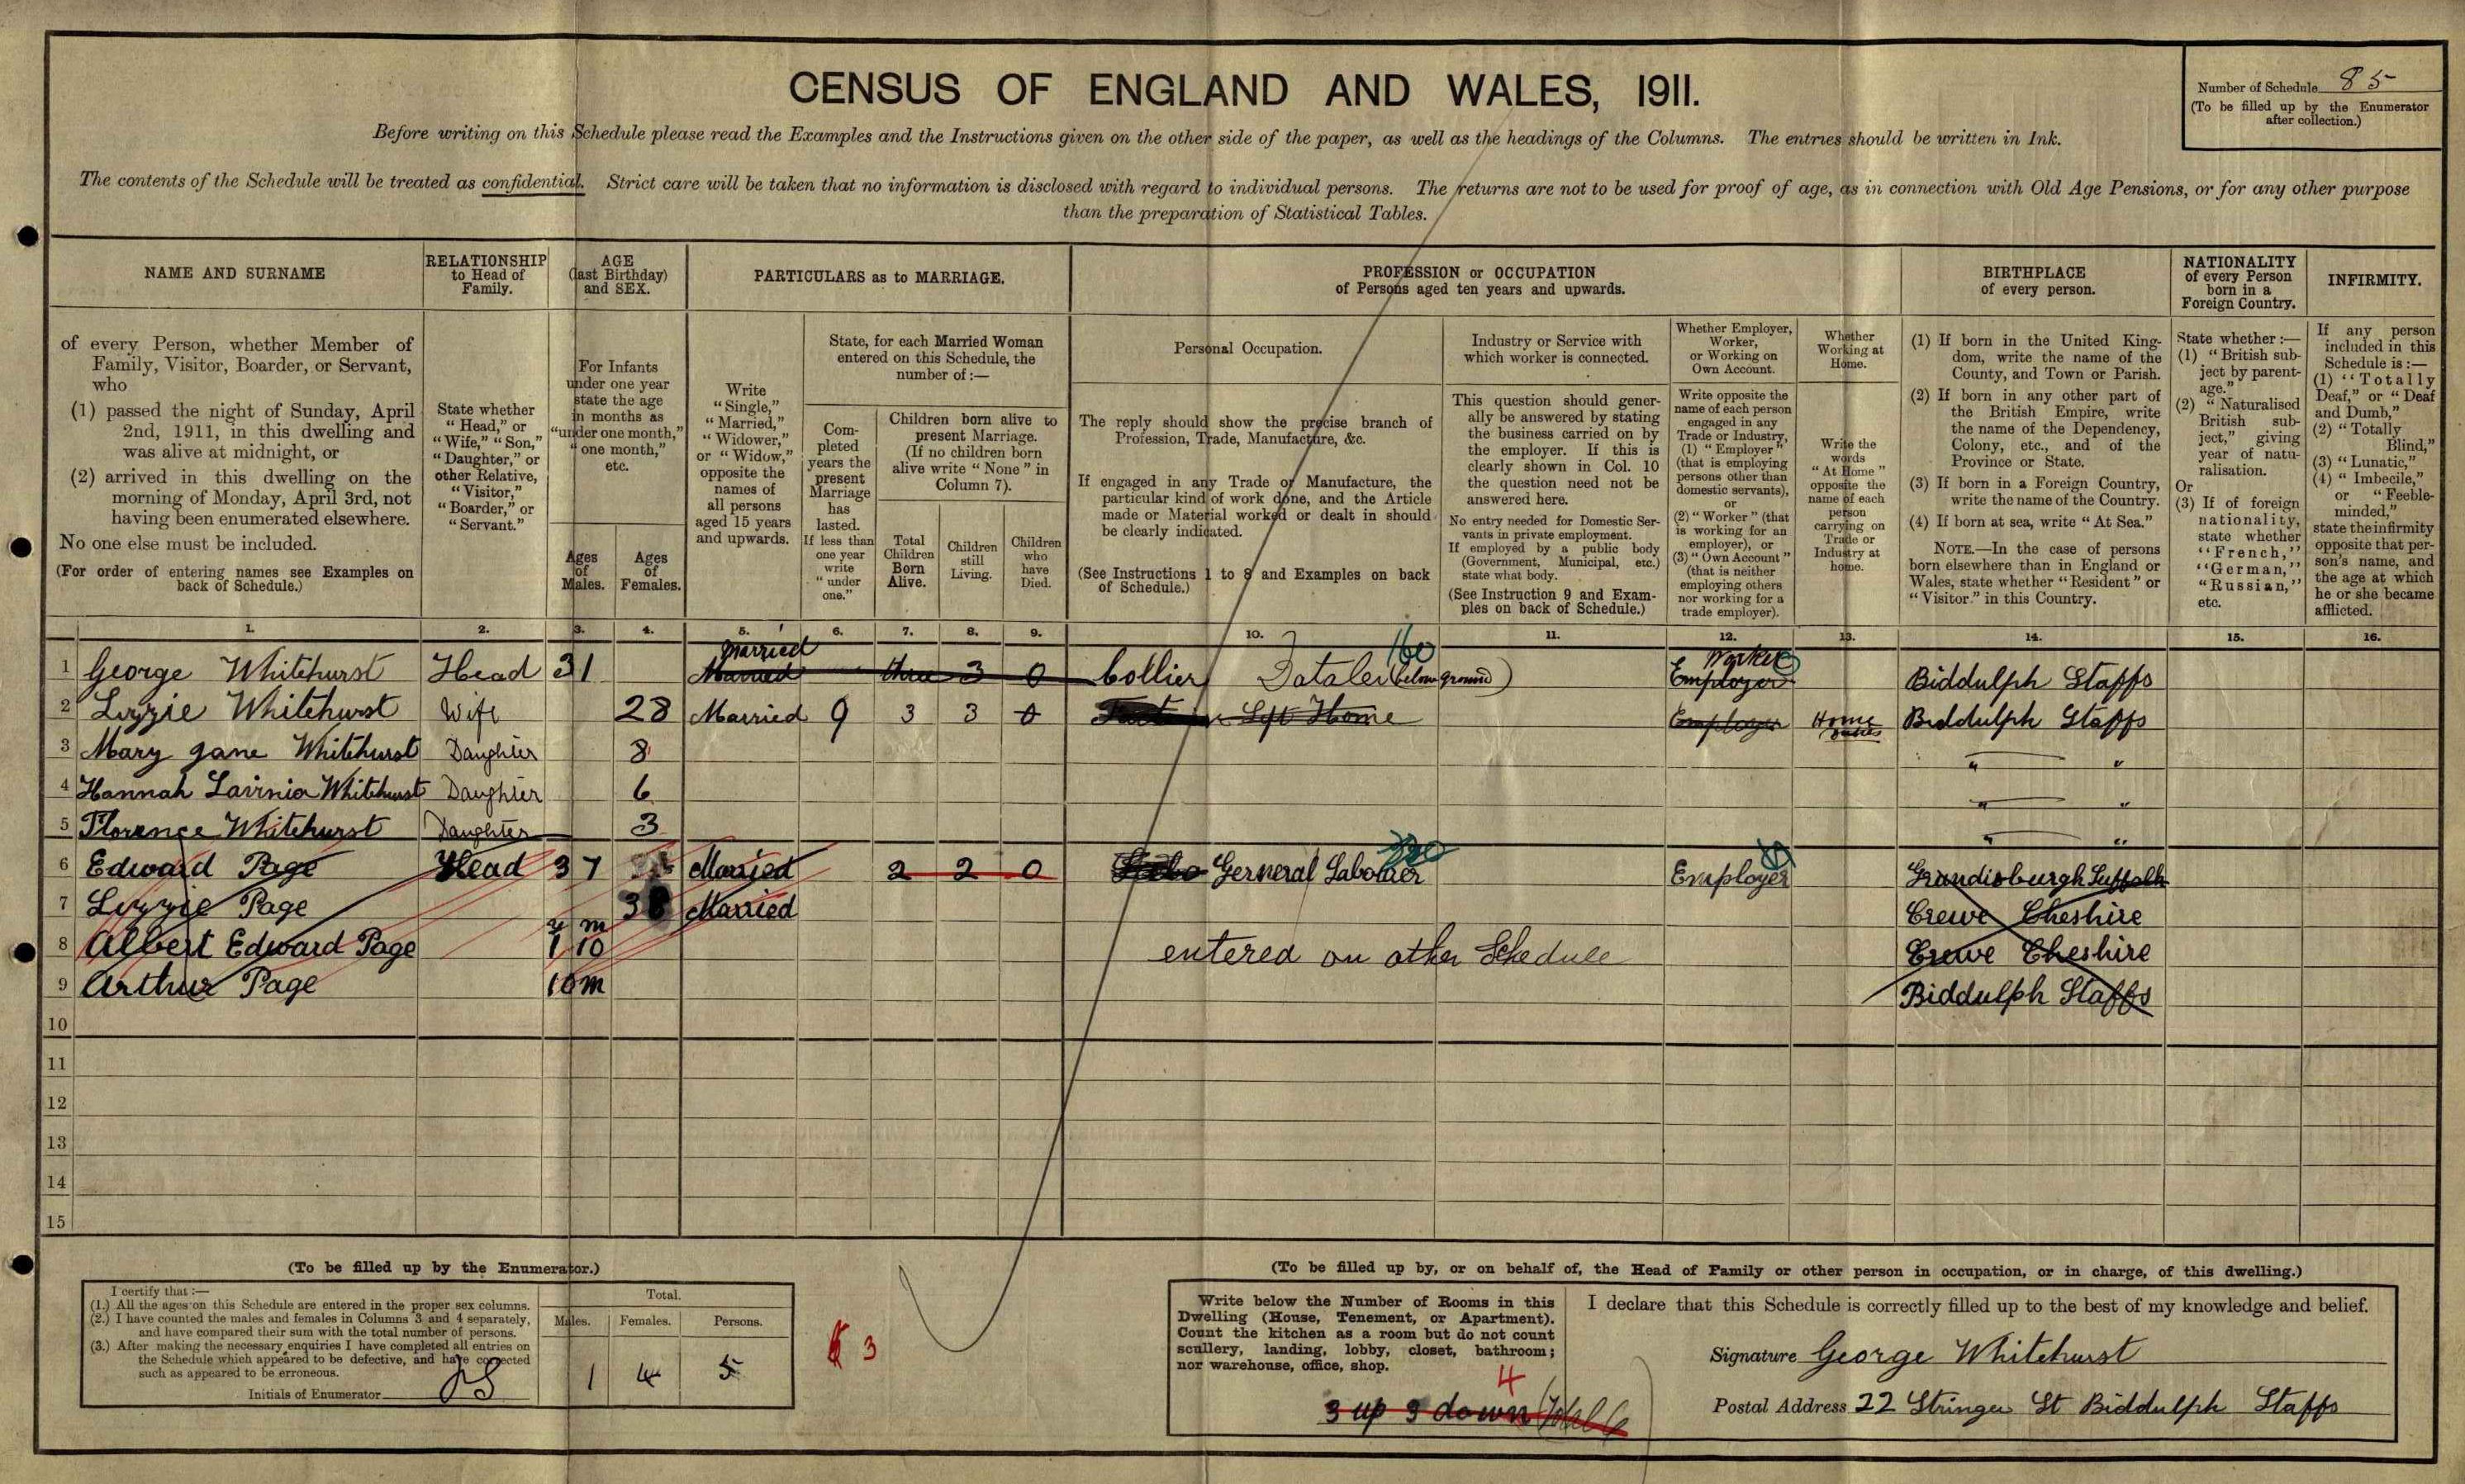 CENSUS OF ENGLAND AND WALES, 1911.
Number of Schedule 85
(To be filled up by the Enumerator
after collection.)
Before writing on this Schedule please read the Examples and the Instructions given on the other side of the paper, as well as the headings of the Columns. The entries should be written in Ink.
The contents of the Schedule will be treated as confidential. Strict care will be taken that no information is disclosed with regard to individual persons. The returns are not to be used for proof of age, as in connection with Old Age Pensions, or for any other purpose
than the preparation of Statistical Tables.
NAME AND SURNAME
of every Person, whether Member of
Family, Visitor, Boarder, or Servant,
who
(1) passed the night of Sunday, April
2nd, 1911, in this dwelling and
was alive at midnight, or
(2) arrived in this dwelling on the
morning of Monday, April 3rd, not
having been enumerated elsewhere.
No one else must be included.
(For order of entering names see Examples on
back of Schedule.)
RELATIONSHIP
to Head of
Family.
State whether
"Head," or
"Wife," "Son,"
"Daughter," or
other Relative,
"Visitor,"
"Boarder," or
"Servant."
AGE
(last Birthday)
and SEX.
For Infants
under one year
state the age
in months as
"under one month,"
"one month,"
etc.
Ages
of
Males.
Ages
of
Females.
PARTICULARS as to MARRIAGE.
Write
"Single,"
"Married,"
"Widower,"
or "Widow,"
opposite the
names of
all persons
aged 15 years
and upwards.
State, for each Married Woman
entered on this Schedule, the
number of :—
Com-
pleted
years the
present
Marriage
has
lasted.
If less than
one year
write
"under
one."
Children born alive to
present Marriage.
(If no children born
alive write "None" in
Column 7).
Total
Children
Born
Alive.
Children
still
Living.
Children
who
have
Died.
PROFESSION or OCCUPATION
of Persons aged ten years and upwards.
Personal Occupation.
The reply should show the precise branch of
Profession, Trade, Manufacture, &c.
If engaged in any Trade or Manufacture, the
particular kind of work done, and the Article
made or Material worked or dealt in should
be clearly indicated.
(See Instructions 1 to 8 and Examples on back
of Schedule.)
Industry or Service with
which worker is connected.
This question should gener-
ally be answered by stating
the business carried on by
the employer. If this is
clearly shown in Col. 10
the question need not be
answered here.
No entry needed for Domestic Ser-
vants in private employment.
If employed by a public body
(Government, Municipal, etc.)
state what body.
(See Instruction 9 and Exam-
ples on back of Schedule.)
Whether Employer,
Worker,
or Working on
Own Account.
Write opposite the
name of each person
engaged in any
Trade or Industry,
(1) "Employer"
(that is employing
persons other than
domestic servants),
or
(2) "Worker" (that
is working for an
employer), or
(3) "Own Account"
(that is neither
employing others
nor working for a
trade employer).
Whether
Working at
Home.
Write the
words
"At Home"
opposite the
name of each
person
carrying on
Trade or
Industry at
home.
BIRTHPLACE
of every person.
(1) If born in the United King-
dom, write the name of the
County, and Town or Parish.
(2) If born in any other part of
the British Empire, write
the name of the Dependency,
Colony, etc., and of the
Province or State.
(3) If born in a Foreign Country,
write the name of the Country.
(4) If born at sea, write "At Sea."
NOTE.—In the case of persons
born elsewhere than in England or
Wales, state whether "Resident" or
"Visitor" in this Country.
NATIONALITY
of every Person
born in a
Foreign Country.
State whether :—
(1) "British sub-
ject by parent-
age."
(2) "Naturalised
British sub-
ject," giving
year of natu-
ralisation.
Or
(3) If of foreign
nationality,
state whether
"French,"
"German,"
"Russian,"
etc.
INFIRMITY.
If any person
included in this
Schedule is :—
(1) "Totally
Deaf," or "Deaf
and Dumb,"
(2) "Totally
Blind,"
(3) "Lunatic,"
(4) "Imbecile,"
or "Feeble-
minded,"
state the infirmity
opposite that per-
son's name, and
the age at which
he or she became
afflicted.
1. 2. 3. 4. 5. 6. 7. 8. 9. 10. 11. 12. 13. 14. 15. 16.
Married 160 Worker
1 George Whitehurst Head 31 Married three 3 0 Collier Dataler (below ground) Employer Biddulph Staffs
2 Lizzie Whitehurst Wife 28 Married 9 3 3 0 Left Home Employer Home Duties Biddulph Staffs
3 Mary Jane Whitehurst Daughter 8 " "
4 Hannah Lavinia Whitehurst Daughter 6 " "
5 Florence Whitehurst Daughter 3 " "
6 Edward Page Head 37 Married 2 2 0 Gerneral Labourer Employer Grundisburgh Suffolk
7 Lizzie Page 36 Married Crewe Cheshire
y m
8 Albert Edward Page 1 10 entered on other Schedule Crewe Cheshire
9 Arthur Page 10m Biddulph Staffs
10
11
12
13
14
15
(To be filled up by the Enumerator.)
I certify that :—
(1.) All the ages on this Schedule are entered in the proper sex columns.
(2.) I have counted the males and females in Columns 3 and 4 separately,
and have compared their sum with the total number of persons.
(3.) After making the necessary enquiries I have completed all entries on
the Schedule which appeared to be defective, and have corrected
such as appeared to be erroneous.
Initials of Enumerator
Total.
Males. Females. Persons.
1 4 5
3
(To be filled up by, or on behalf of, the Head of Family or other person in occupation, or in charge, of this dwelling.)
Write below the Number of Rooms in this
Dwelling (House, Tenement, or Apartment).
Count the kitchen as a room but do not count
scullery, landing, lobby, closet, bathroom;
nor warehouse, office, shop.
4
3 up 3 down Total 6
I declare that this Schedule is correctly filled up to the best of my knowledge and belief.
Signature George Whitehurst
Postal Address 22 Stringer St Biddulph Staffs